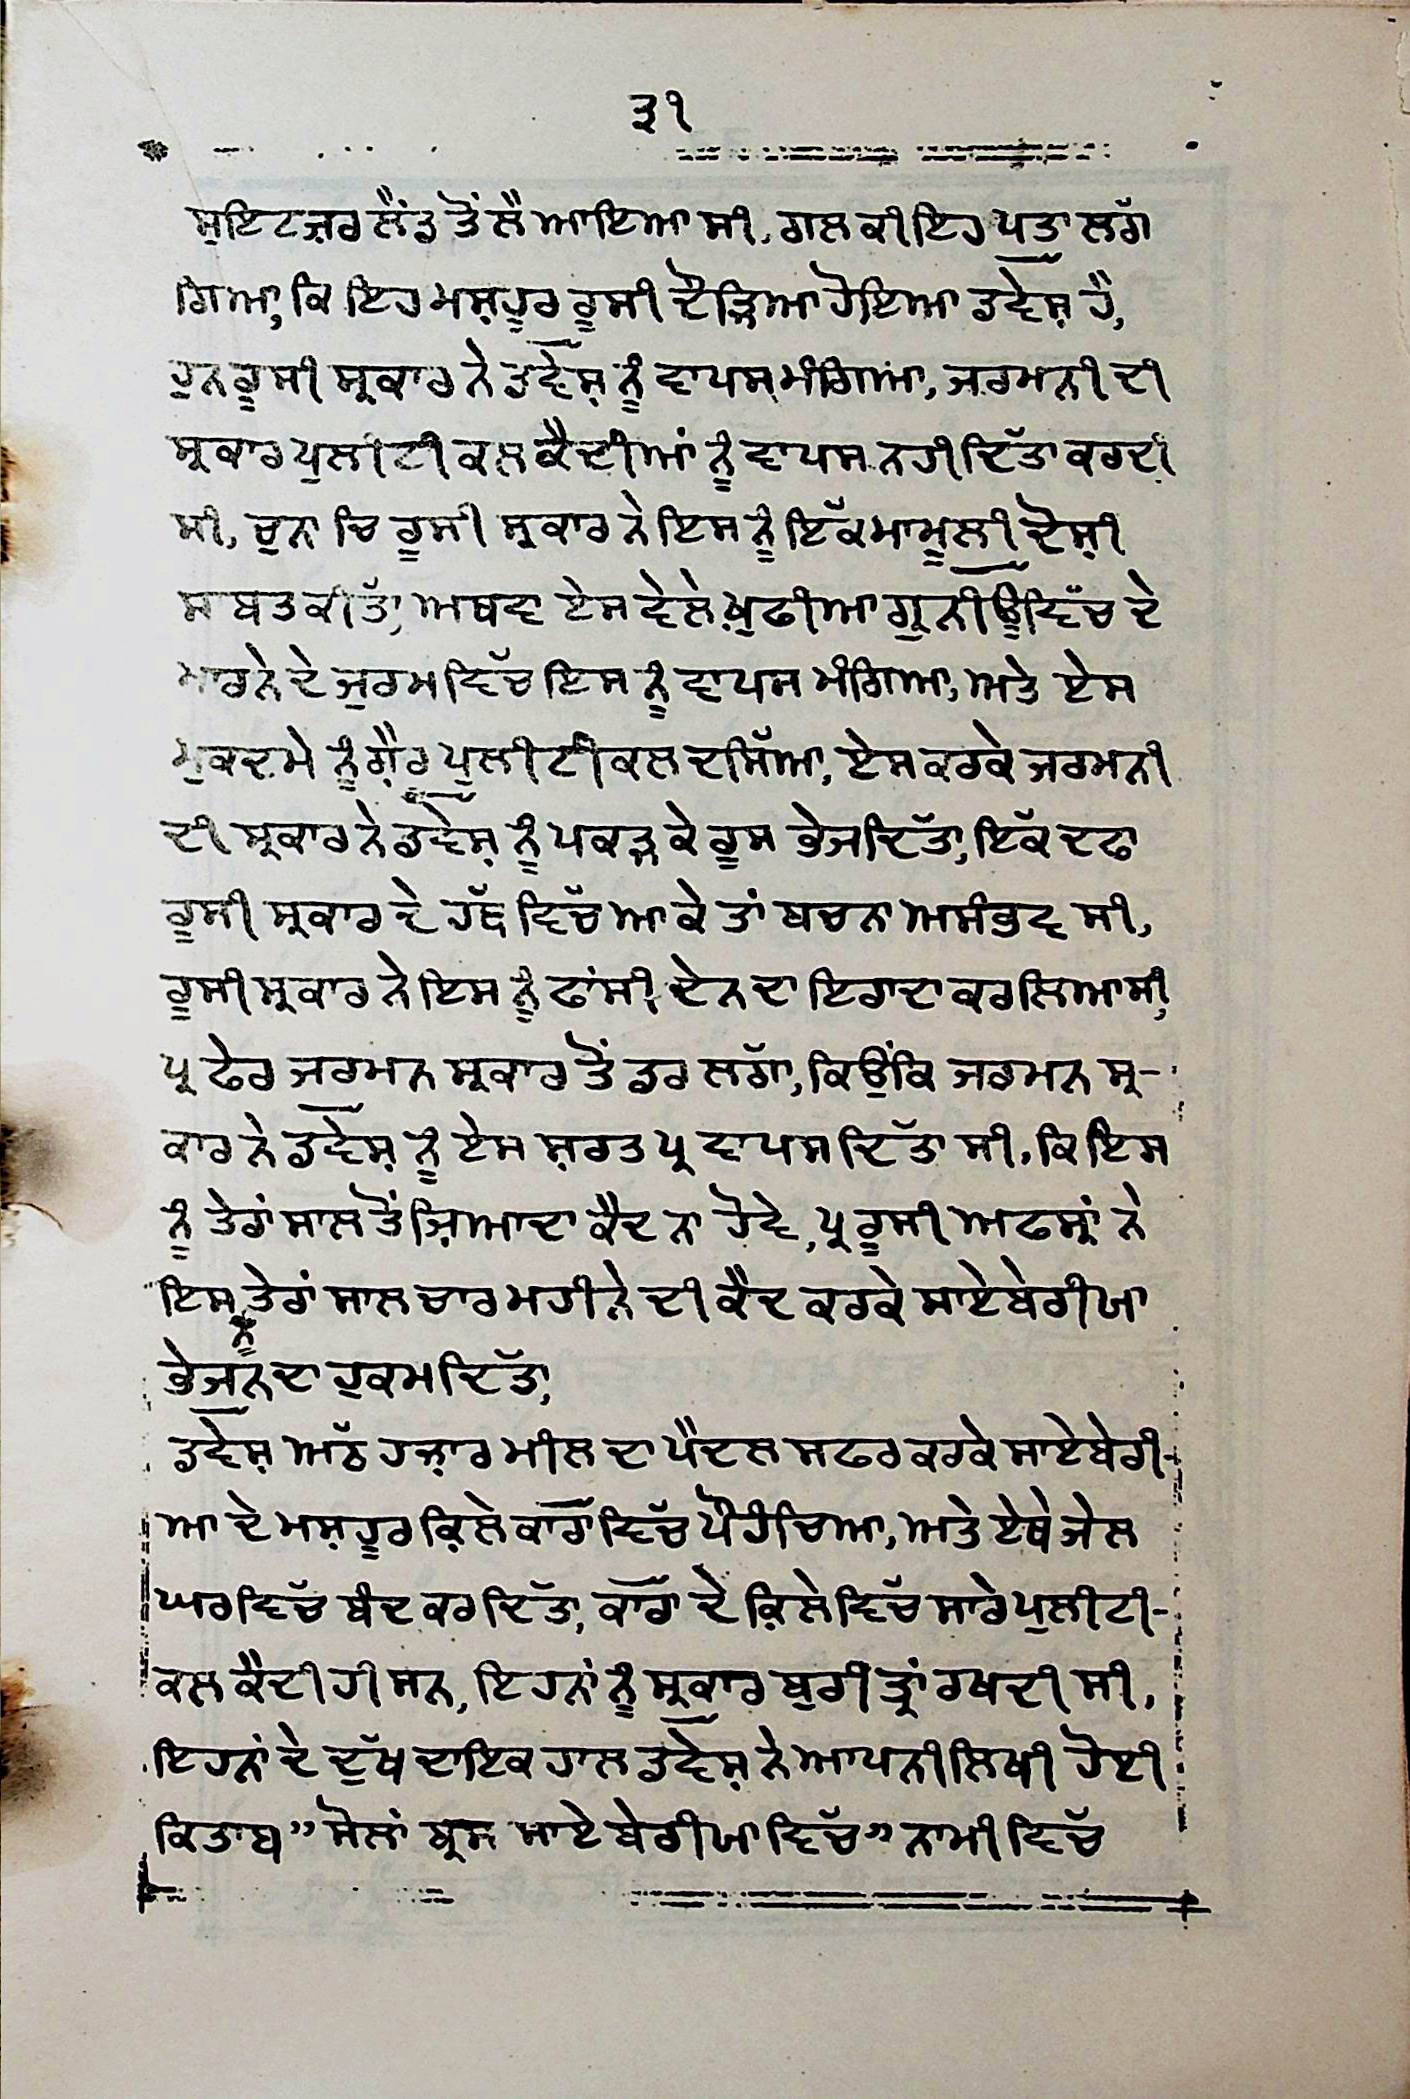 ੩੧
ਸੁਇਟਜ਼ਰਲੈਂਡ ਤੋਂ ਲੈ ਆਇਆ ਸੀ, ਗਲ ਕੀ ਇਹ ਪਤਾ ਲਗੱ
ਗਿਆ, ਕਿ ਇਹ ਮਸ਼ਹੂਰ ਰੂਸੀ ਦੌੜਿਆ ਹੋਇਆ ਡਵੇਸ਼ ਹੈ,
ਹੁਨ ਰੂਸੀ ਸ੍ਰਕਾਰ ਨੇ ਡਵੇਸ਼ ਨੂੰ ਵਾਪਸ ਮੰਗਿਆ, ਜਰਮਨੀ ਦੀ
ਸ੍ਰਕਾਰ ਪੁਲੀਟੀਕਲ ਕੈਦੀਆਂ ਨੂੰ ਵਾਪਸ ਨਹੀ ਦਿੱਤਾ ਕਰਦੀ
ਸੀ, ਚੁਨਾਚਿ ਰੂਸੀ ਸ੍ਰਕਾਰ ਨੇ ਇਸ ਨੂੰ ਇੱਕ ਮਾਮੂਲੀ ਦੋਸ਼ੀ
ਸਬਤ ਕੀਤਾ, ਅਥਵਾ ਏਸ ਵੇਲੇ ਖ਼ੁਫੀਆ ਵਿੱਚ ਦੇ
ਮਾਰਨੇ ਦੇ ਜੁਰਮ ਵਿੱਚ ਇਸ ਨੂੰ ਵਾਪਸ ਮੰਗਿਆ, ਅਤੇ ਏਸ
ਮੁਕਦਮੇ ਨੂੰ ਗੈ਼ਰ ਪੁਲੀਟੀਕਲ ਦਸਿੱਆ, ਏਸ ਕਰਕੇ ਜਰਮਨੀ
ਦੀ ਸ੍ਰਕਾਰ ਨੇ ਡਵੇਸ਼ ਨੂੰ ਪਕੜ ਕੇ ਰੂਸ ਭੇਜ ਦਿੱਤਾ, ਇੱਕ ਦਫਾ
ਰੂਸੀ ਸ੍ਰਕਾਰ ਦੇ ਹੱਥ ਵਿੱਚ ਆ ਕੇ ਤਾਂ ਬਚਨਾ ਅਸੰਭਵ ਸੀ,
ਰੂਸੀ ਸ੍ਰਕਾਰ ਨੇ ਇਸ ਨੂੰ ਫਾਂਸੀ ਦੇਨ ਦਾ ਇਰਾਦਾ ਕਰ ਲਿਆ ਸੀ,
ਪ੍ਰ ਫੇਰ ਜਰਮਨ ਸ੍ਰਕਾਰ ਤੋਂ ਡਰ ਲਗੱਾ, ਕਿਉਂਕਿ ਜਰਮਨ ਸ੍ਰ-
ਕਾਰ ਨੇ ਡਵੇਸ਼ ਨੂੰ ਏਸ ਸ਼ਰਤ ਪ੍ਰ ਵਾਪਸ ਦਿੱਤਾ ਸੀ, ਕਿ ਇਸ
ਨੂੰ ਤੇਰਾਂ ਸਾਲ ਤੋਂ ਜ਼ਿਆਦਾ ਕੈਦ ਨਾ ਹੋਵੇ, ਪ੍ਰ ਰੂਸੀ ਅਫਸ੍ਰਾਂ ਨੇ
ਇਸ ਨੂੰ ਤੇਰਾਂ ਸਾਲ ਚਾਰ ਮਹੀਨੇ ਦੀ ਕੈਦ ਕਰਕੇ ਸਾਏਬੇਰੀਯਾ
ਭੇਜਨ ਦਾ ਹੁਕਮ ਦਿੱਤਾ,
ਡਵੇਸ਼ ਅਠੱ ਹਜ਼ਾਰ ਮੀਲ ਦਾ ਪੈਦਲ ਸਫਰ ਕਰਕੇ ਸਾਏਬੇਰੀ-
ਆ ਦੇ ਮਸ਼ਹੂਰ ਕਿ਼ਲੇ ਕਾਰਾ ਵਿੱਚ ਪੌਹੰਚਿਆ, ਅਤੇ ਏਥੇ ਜੇਲ
ਘਰ ਵਿੱਚ ਬੰਦ ਕਰ ਦਿੱਤਾ, ਕਾਰਾ ਦੇ ਕਿ਼ਲੇ ਵਿੱਚ ਸਾਰੇ ਪੁਲੀਟੀ-
ਕਲ ਕੈਦੀ ਹੀ ਸਨ, ਇਹਨਾਂ ਨੂੰ ਸ੍ਰਕਾਰ ਬੁਰੀ ਤ੍ਰਾਂ ਰਖਦੀ ਸੀ,
ਇਹਨਾਂ ਦੇ ਦੁੱਖ ਦਾਇਕ ਹਾਲ ਡਵੇਸ਼ ਨੇ ਆਪਨੀ ਲਿਖੀ ਹੋਈ
ਕਿਤਾਬ ”ਸੋਲਾਂ ਬ੍ਰਸ ਸਾਏਬੇਰੀਯਾ ਵਿੱਚ” ਨਾਮੀ ਵਿੱਚ